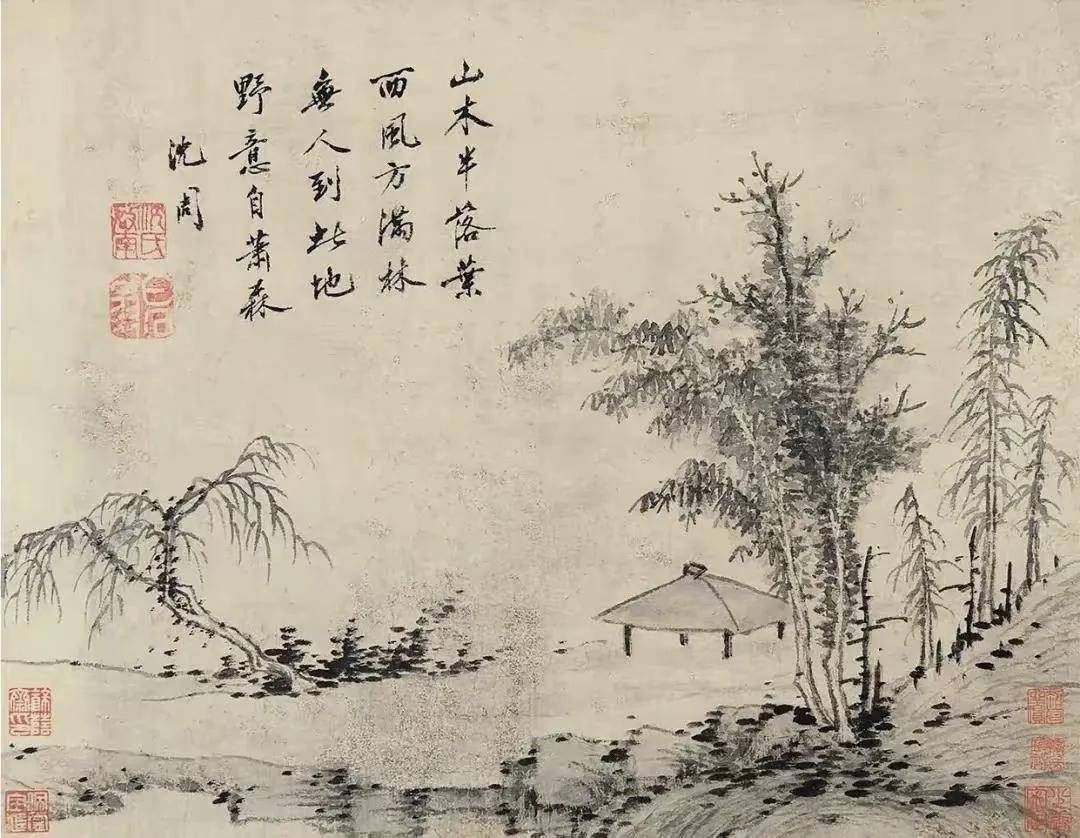 山木半落葉
西風方滿林
無人到此地
野意自蕭森
沈周
沈氏啟南